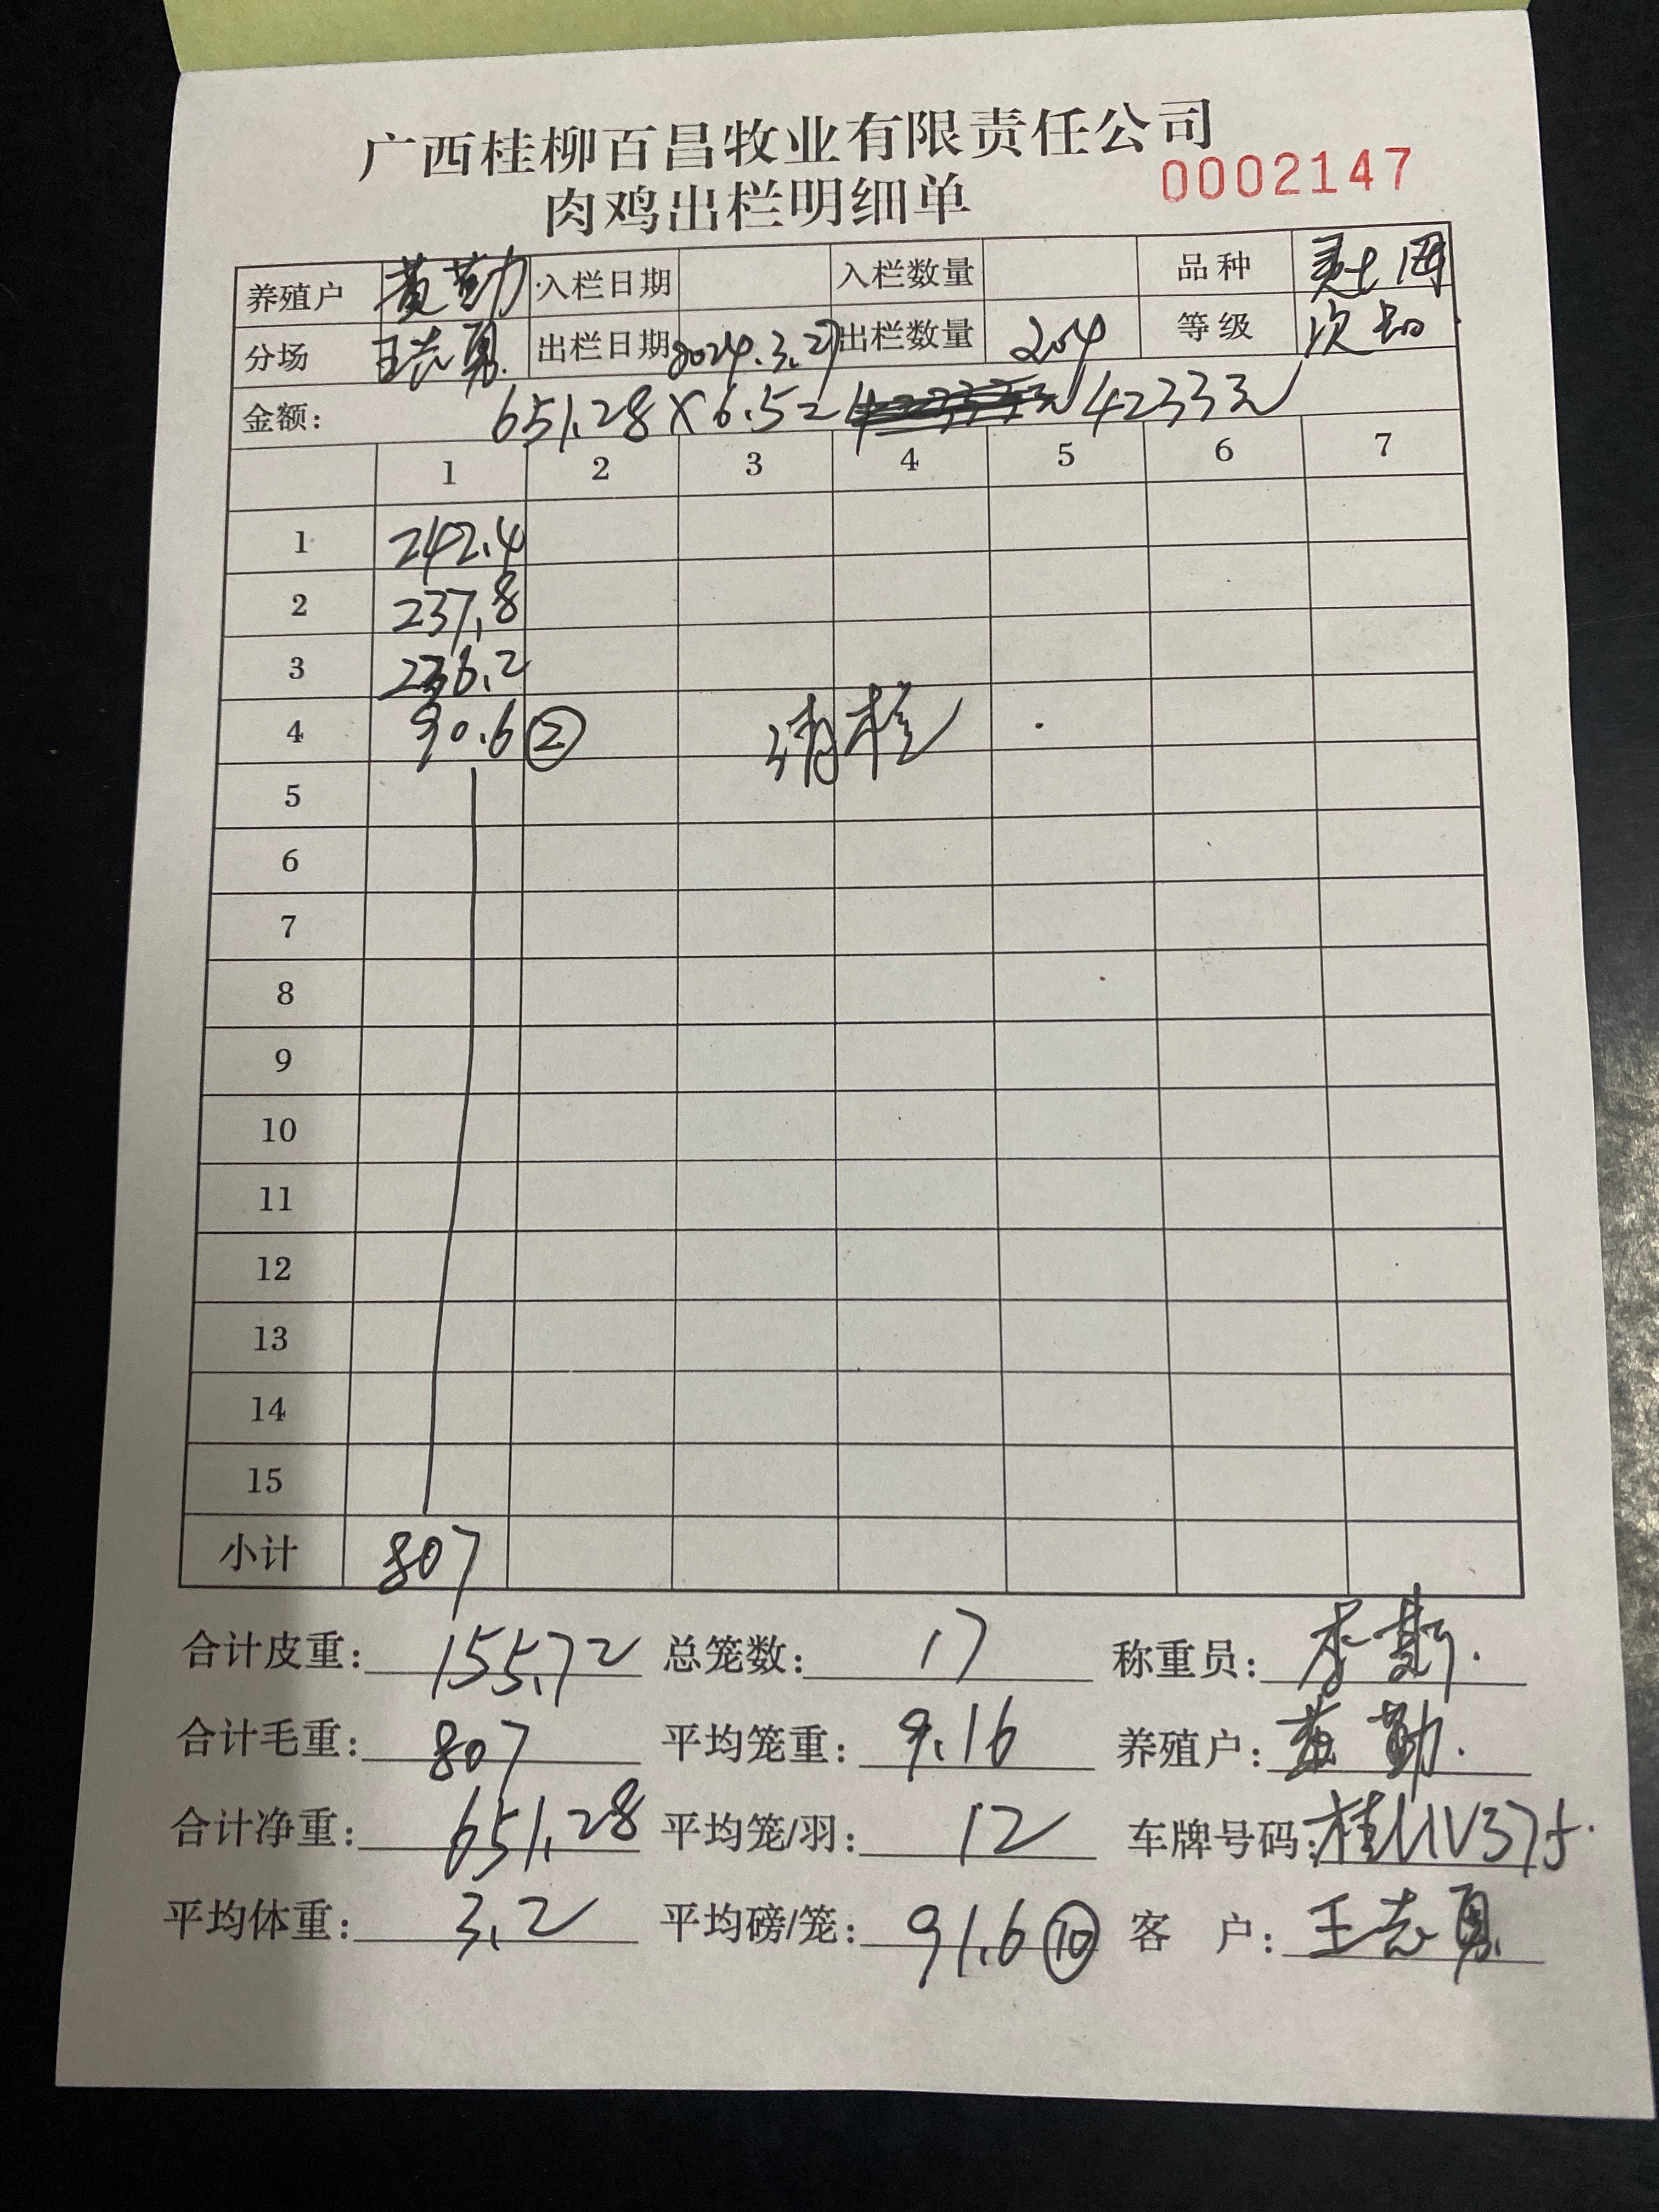 广西桂柳百昌牧业有限责任公司
肉鸡出栏明细单 0002147
养殖户 黄勤 入栏日期 入栏数量 品种
分场 王志勇 出栏日期 2024.3.27 出栏数量 204 等级 次
金额: 651.28×6.5= 4233元
1 2 3 4 5 6 7
1 242.4
2 237.8
3 236.2
4 90.6 ② 清栏
5
6
7
8
9
10
11
12
13
14
15
小计 807
合计皮重: 155.72 总笼数: 17 称重员: 李
合计毛重: 807 平均笼重: 9.16 养殖户: 黄勤
合计净重: 651.28 平均笼/羽: 12 车牌号码: 桂
平均体重: 3.2 平均磅/笼: 91.6 ⑩ 客户: 王志勇